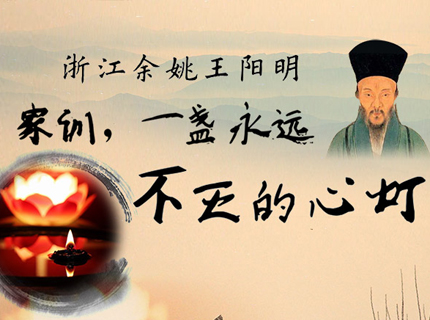 浙江余姚王阳明
家训，一盏永远
不灭的心灯